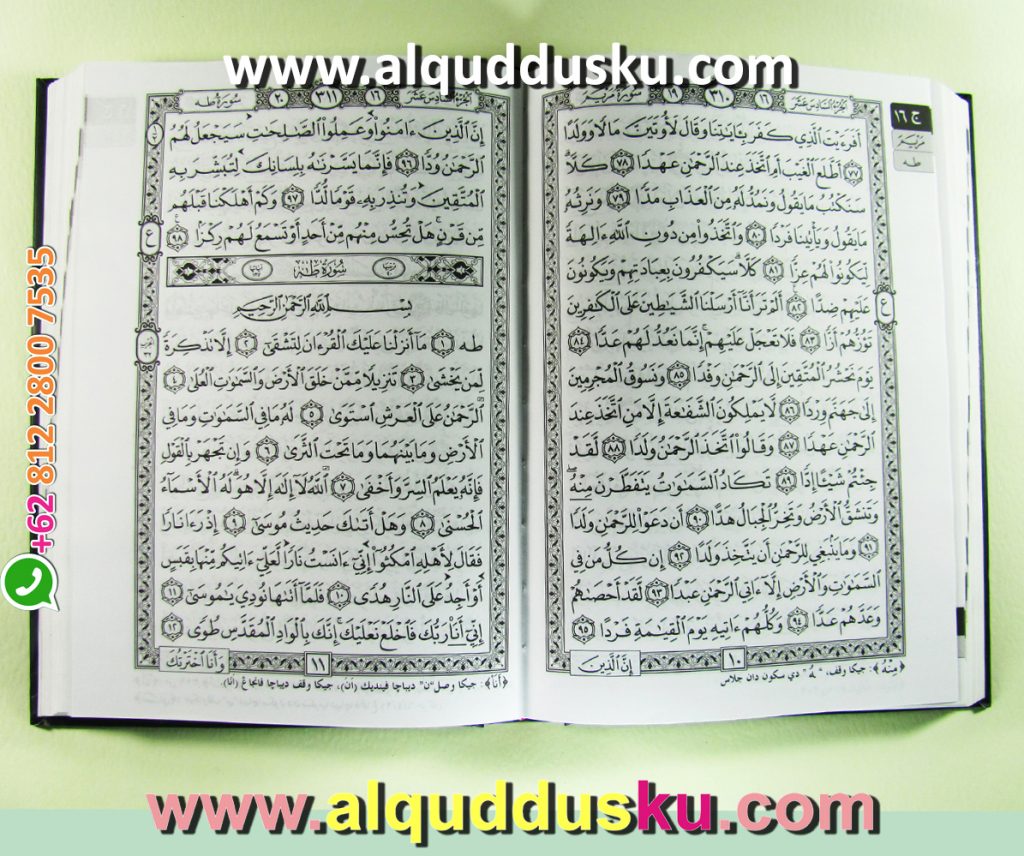 www.alquddusku.com
الجزء السادس عشر ١٦ ٣١٠ ١٩ سورة مريم
ج ١٦
مريم
طه
أَفَرَءَيْتَ ٱلَّذِي كَفَرَ بِـَٔايَٰتِنَا وَقَالَ لَأُوتَيَنَّ مَالًا وَوَلَدًا
٧٧ أَطَّلَعَ ٱلْغَيْبَ أَمِ ٱتَّخَذَ عِندَ ٱلرَّحْمَٰنِ عَهْدًا ٧٨ كَلَّا
سَنَكْتُبُ مَا يَقُولُ وَنَمُدُّ لَهُۥ مِنَ ٱلْعَذَابِ مَدًّا ٧٩ وَنَرِثُهُۥ
مَا يَقُولُ وَيَأْتِينَا فَرْدًا ٨٠ وَٱتَّخَذُوا۟ مِن دُونِ ٱللَّهِ ءَالِهَةً
لِّيَكُونُوا۟ لَهُمْ عِزًّا ٨١ كَلَّا سَيَكْفُرُونَ بِعِبَادَتِهِمْ وَيَكُونُونَ
عَلَيْهِمْ ضِدًّا ٨٢ أَلَمْ تَرَ أَنَّآ أَرْسَلْنَا ٱلشَّيَٰطِينَ عَلَى ٱلْكَٰفِرِينَ
تَؤُزُّهُمْ أَزًّا ٨٣ فَلَا تَعْجَلْ عَلَيْهِمْ إِنَّمَا نَعُدُّ لَهُمْ عَدًّا ٨٤
يَوْمَ نَحْشُرُ ٱلْمُتَّقِينَ إِلَى ٱلرَّحْمَٰنِ وَفْدًا ٨٥ وَنَسُوقُ ٱلْمُجْرِمِينَ
إِلَىٰ جَهَنَّمَ وِرْدًا ٨٦ لَّا يَمْلِكُونَ ٱلشَّفَٰعَةَ إِلَّا مَنِ ٱتَّخَذَ عِندَ
ٱلرَّحْمَٰنِ عَهْدًا ٨٧ وَقَالُوا۟ ٱتَّخَذَ ٱلرَّحْمَٰنُ وَلَدًا ٨٨ لَّقَدْ
جِئْتُمْ شَيْـًٔا إِدًّا ٨٩ تَكَادُ ٱلسَّمَٰوَٰتُ يَتَفَطَّرْنَ مِنْهُ
وَتَنشَقُّ ٱلْأَرْضُ وَتَخِرُّ ٱلْجِبَالُ هَدًّا ٩٠ أَن دَعَوْا۟ لِلرَّحْمَٰنِ وَلَدًا
٩١ وَمَا يَنۢبَغِي لِلرَّحْمَٰنِ أَن يَتَّخِذَ وَلَدًا ٩٢ إِن كُلُّ مَن فِي
ٱلسَّمَٰوَٰتِ وَٱلْأَرْضِ إِلَّآ ءَاتِي ٱلرَّحْمَٰنِ عَبْدًا ٩٣ لَّقَدْ أَحْصَىٰهُمْ
وَعَدَّهُمْ عَدًّا ٩٤ وَكُلُّهُمْ ءَاتِيهِ يَوْمَ ٱلْقِيَٰمَةِ فَرْدًا ٩٥
ع
١٠
إِنَّ ٱلَّذِينَ
﴿مِنْهُ﴾: جيكا وقف، "ـهُ" دي سكون دان جلاس
الجزء السادس عشر ١٦ ٣١١ ٢٠ سورة طه
إِنَّ ٱلَّذِينَ ءَامَنُوا۟ وَعَمِلُوا۟ ٱلصَّٰلِحَٰتِ سَيَجْعَلُ لَهُمُ
ٱلرَّحْمَٰنُ وُدًّا ٩٦ فَإِنَّمَا يَسَّرْنَٰهُ بِلِسَانِكَ لِتُبَشِّرَ بِهِ
ٱلْمُتَّقِينَ وَتُنذِرَ بِهِۦ قَوْمًا لُّدًّا ٩٧ وَكَمْ أَهْلَكْنَا قَبْلَهُم
مِّن قَرْنٍ هَلْ تُحِسُّ مِنْهُم مِّنْ أَحَدٍ أَوْ تَسْمَعُ لَهُمْ رِكْزًۢا ٩٨
سُورَةُ طه
بِسْمِ ٱللَّهِ ٱلرَّحْمَٰنِ ٱلرَّحِيمِ
طه ١ مَآ أَنزَلْنَا عَلَيْكَ ٱلْقُرْءَانَ لِتَشْقَىٰٓ ٢ إِلَّا تَذْكِرَةً
لِّمَن يَخْشَىٰ ٣ تَنزِيلًا مِّمَّنْ خَلَقَ ٱلْأَرْضَ وَٱلسَّمَٰوَٰتِ ٱلْعُلَى ٤
ٱلرَّحْمَٰنُ عَلَى ٱلْعَرْشِ ٱسْتَوَىٰ ٥ لَهُۥ مَا فِي ٱلسَّمَٰوَٰتِ وَمَا فِي
ٱلْأَرْضِ وَمَا بَيْنَهُمَا وَمَا تَحْتَ ٱلثَّرَىٰ ٦ وَإِن تَجْهَرْ بِٱلْقَوْلِ
فَإِنَّهُۥ يَعْلَمُ ٱلسِّرَّ وَأَخْفَى ٧ ٱللَّهُ لَآ إِلَٰهَ إِلَّا هُوَ لَهُ ٱلْأَسْمَآءُ
ٱلْحُسْنَىٰ ٨ وَهَلْ أَتَىٰكَ حَدِيثُ مُوسَىٰٓ ٩ إِذْ رَءَا نَارًا
فَقَالَ لِأَهْلِهِ ٱمْكُثُوٓا۟ إِنِّيٓ ءَانَسْتُ نَارًا لَّعَلِّيٓ ءَاتِيكُم مِّنْهَا بِقَبَسٍ
أَوْ أَجِدُ عَلَى ٱلنَّارِ هُدًى ١٠ فَلَمَّآ أَتَىٰهَا نُودِيَ يَٰمُوسَىٰٓ ١١
إِنِّيٓ أَنَا۠ رَبُّكَ فَٱخْلَعْ نَعْلَيْكَ إِنَّكَ بِٱلْوَادِ ٱلْمُقَدَّسِ طُوًى ١٢
ع
١١
وَأَنَا ٱخْتَرْتُكَ
﴿أَنَا۠﴾: جيكا وصل "ن" ديباچا ڤينديك (أنَ)، جيكا وقف ديباچا ڤانجاڠ (أنا).
+62 812 2800 7535
www.alquddusku.com